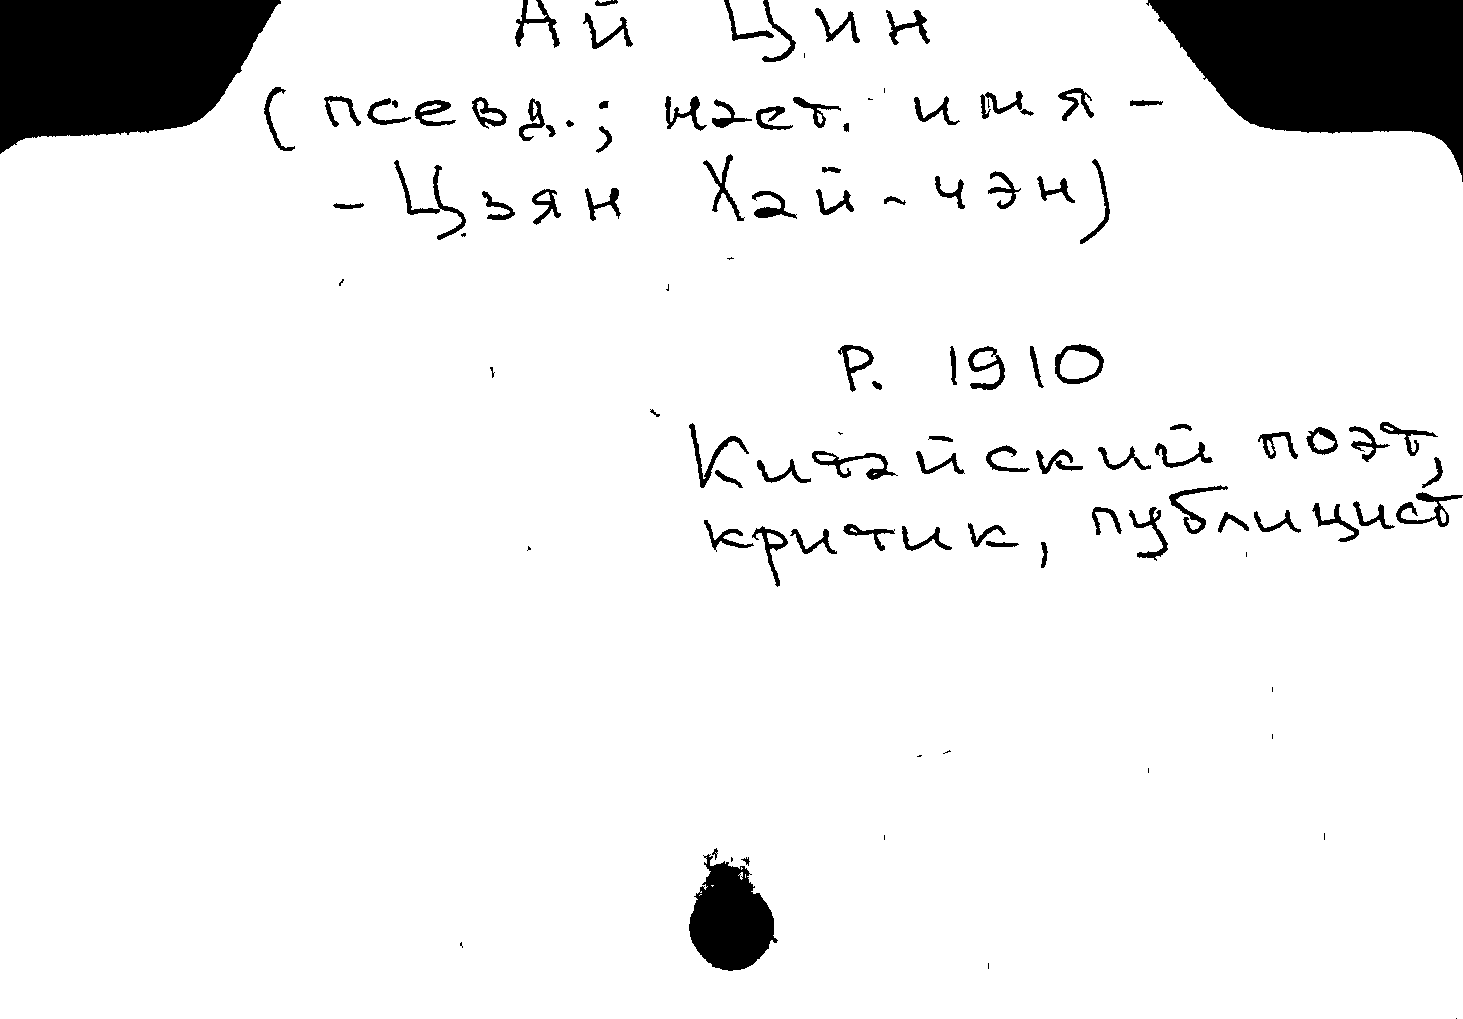 Ай Цин
(псевд.; наст. имя -
- Цзян Хай-чэн)
Р. 1910
Китайский поэт,
критик, публицист